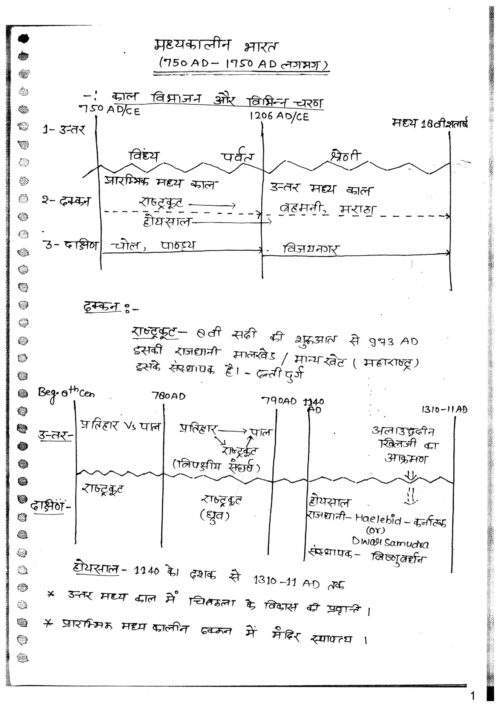 मध्यकालीन भारत
(750 AD - 1750 AD लगभग)
-: काल विभाजन और विभिन्न चरण
750 AD/CE
1206 AD/CE
मध्य 18वी शताब्दी
1- उत्तर
विंध्य पर्वत श्रेणी
प्रारम्भिक मध्य काल
उत्तर मध्य काल
2- दक्कन
राष्ट्रकूट
बहमनी, मराठा
होयसाल
3- दक्षिण
चोल, पाण्ड्य
विजयनगर
दक्कन :-
राष्ट्रकूट - 8वी सदी की शुरुआत से 973 AD
इसकी राजधानी मालखेड / मान्यखेट (महाराष्ट्र)
इसके संस्थापक है। - दन्तीदुर्ग
Beg. 8th Cen
780AD
790AD
1140 AD
1310-11 AD
उत्तर-
प्रतिहार Vs पाल
प्रतिहार → पाल
राष्ट्रकूट
(त्रिपक्षीय संघर्ष)
अलाउद्दीन
खिलजी का
आक्रमण
दक्षिण -
राष्ट्रकूट
राष्ट्रकूट
(ध्रुव)
होयसाल
राजधानी - Haelebid - कर्नाटक
(or)
Dwar Samudra
संस्थापक - विष्णुवर्धन
होयसाल - 1140 का दशक से 1310-11 AD तक
* उत्तर मध्य काल में चित्रकला के विकास की प्रवृत्ति।
* प्रारम्भिक मध्य कालीन दक्कन में मंदिर स्थापत्य।
1